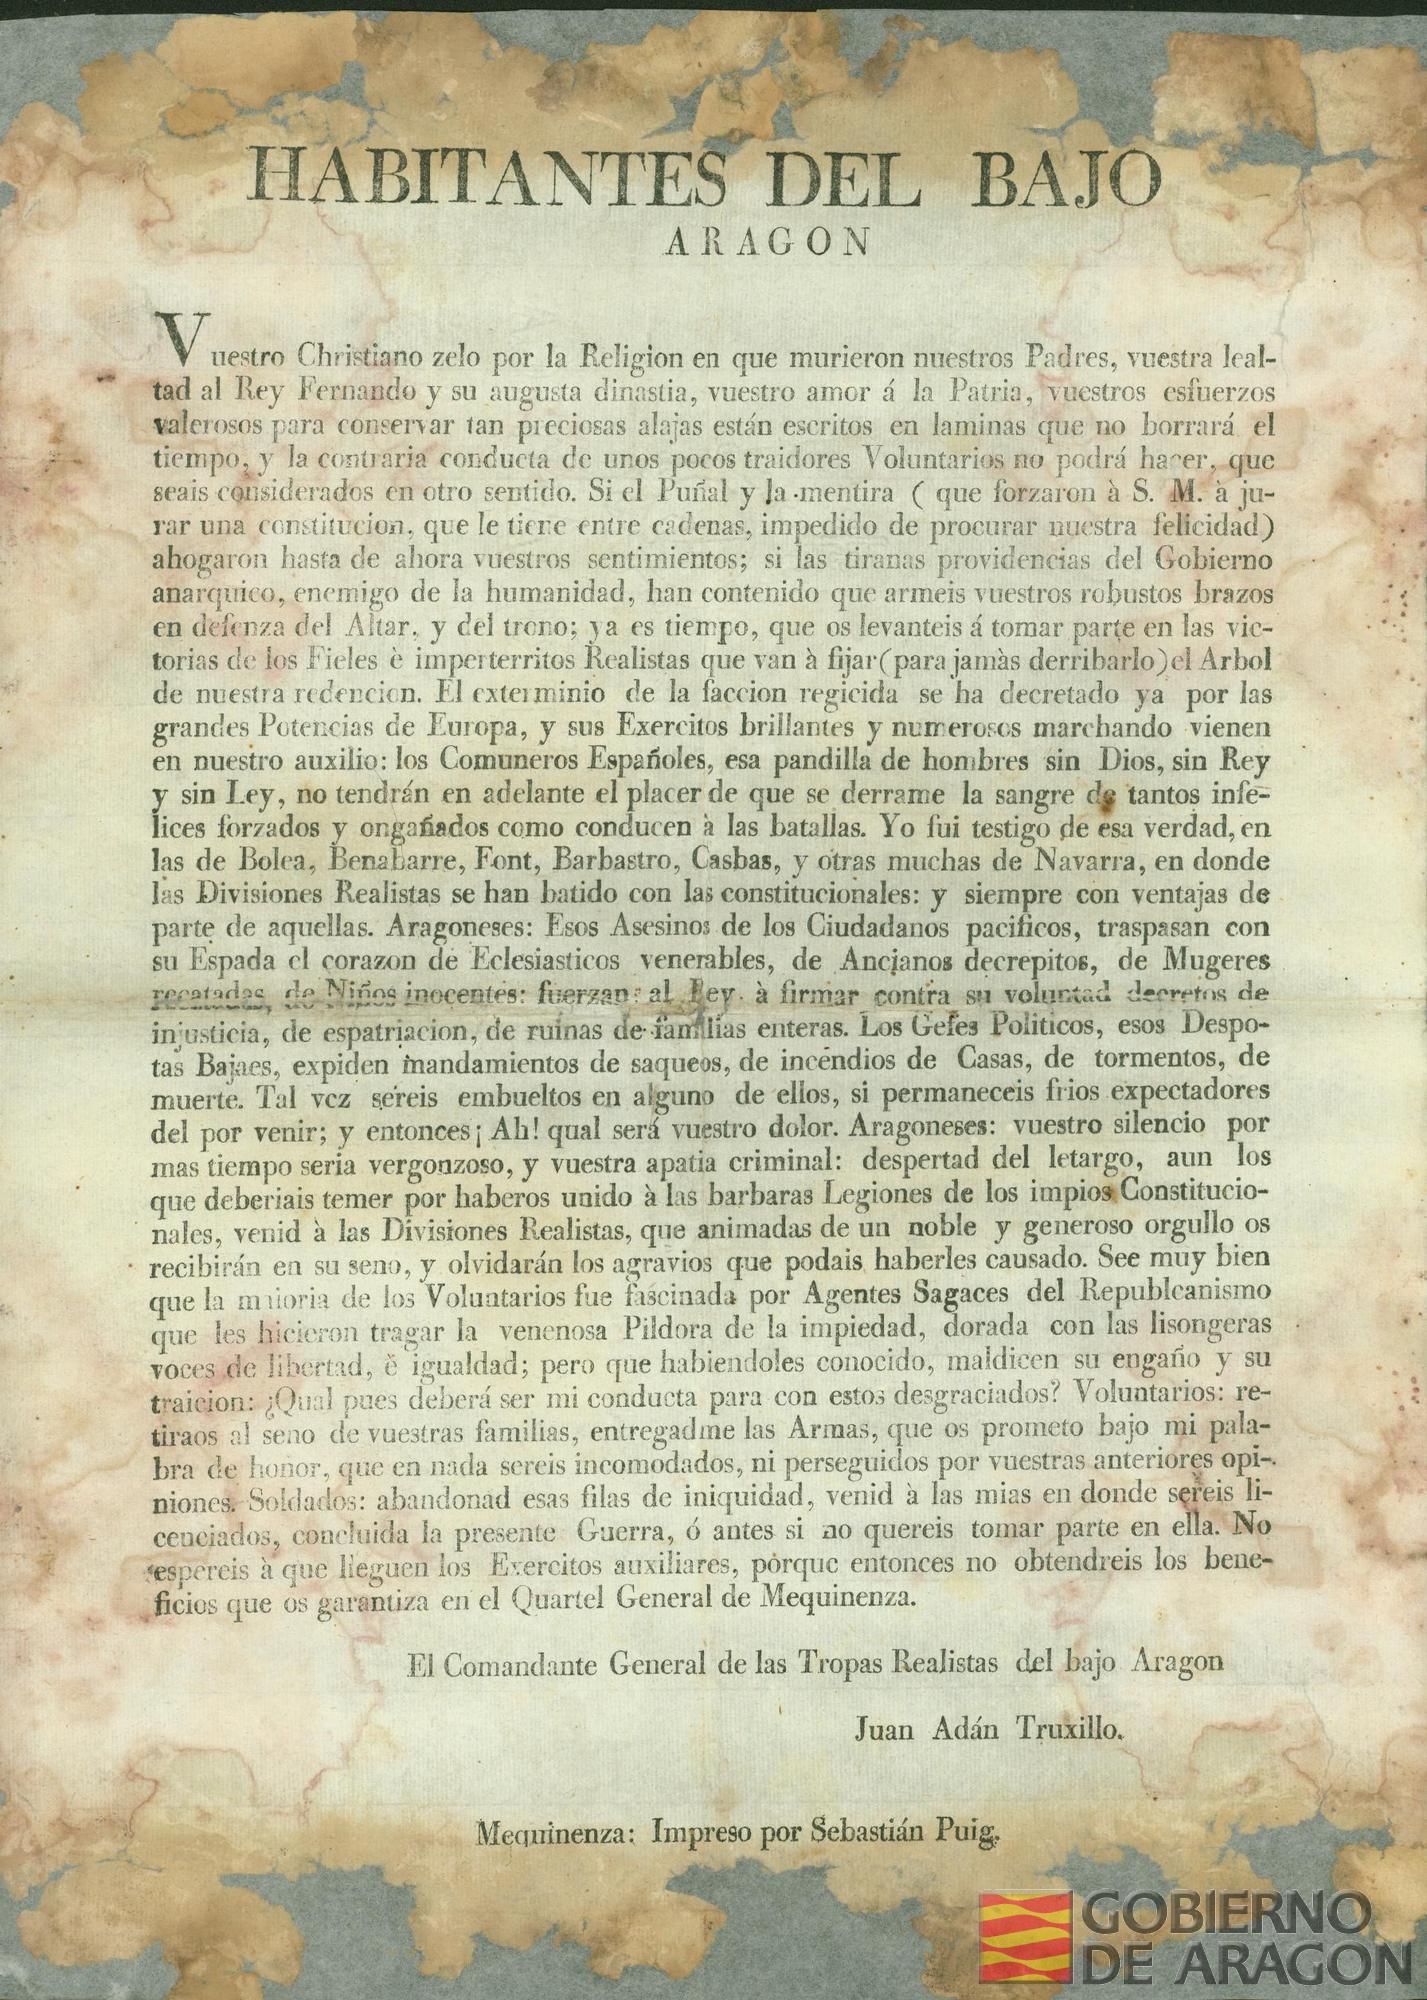 HABITANTES DEL BAJO
ARAGON
Vuestro Christiano zelo por la Religion en que murieron nuestros Padres, vuestra leal-
tad al Rey Fernando y su augusta dinastia, vuestro amor á la Patria, vuestros esfuerzos
valerosos para conservar tan preciosas alajas están escritos en laminas que no borrará el
tiempo, y la contraria conducta de unos pocos traidores Voluntarios no podrá hacer, que
seais considerados en otro sentido. Si el Puñal y la mentira ( que forzaron à S. M. à ju-
rar una constitucion, que le tiene entre cadenas, impedido de procurar nuestra felicidad)
ahogaron hasta de ahora vuestros sentimientos; si las tiranas providencias del Gobierno
anarquico, enemigo de la humanidad, han contenido que armeis vuestros robustos brazos
en defenza del Altar, y del trono; ya es tiempo, que os levanteis á tomar parte en las vic-
torias de los Fieles è imperterritos Realistas que van à fijar (para jamàs derribarlo) el Arbol
de nuestra redencion. El exterminio de la faccion regicida se ha decretado ya por las
grandes Potencias de Europa, y sus Exercitos brillantes y numerosos marchando vienen
en nuestro auxilio: los Comuneros Españoles, esa pandilla de hombres sin Dios, sin Rey
y sin Ley, no tendrán en adelante el placer de que se derrame la sangre de tantos infe-
lices forzados y ongañados como conducen à las batallas. Yo fui testigo de esa verdad, en
las de Bolea, Benabarre, Font, Barbastro, Casbas, y otras muchas de Navarra, en donde
las Divisiones Realistas se han batido con las constitucionales: y siempre con ventajas de
parte de aquellas. Aragoneses: Esos Asesinos de los Ciudadanos pacificos, traspasan con
su Espada el corazon de Eclesiasticos venerables, de Ancianos decrepitos, de Mugeres
recatadas, de Niños inocentes: fuerzan al Rey à firmar contra su voluntad decretos de
injusticia, de espatriacion, de ruinas de familias enteras. Los Gefes Politicos, esos Despo-
tas Bajaes, expiden mandamientos de saqueos, de incendios de Casas, de tormentos, de
muerte. Tal vez sereis embueltos en alguno de ellos, si permaneceis frios expectadores
del por venir; y entonces ¡ Ah! qual será vuestro dolor. Aragoneses: vuestro silencio por
mas tiempo seria vergonzoso, y vuestra apatia criminal: despertad del letargo, aun los
que deberiais temer por haberos unido à las barbaras Legiones de los impios Constitucio-
nales, venid à las Divisiones Realistas, que animadas de un noble y generoso orgullo os
recibirán en su seno, y olvidarán los agravios que podais haberles causado. See muy bien
que la maioria de los Voluntarios fue fascinada por Agentes Sagaces del Republcanismo
que les hicieron tragar la venenosa Pildora de la impiedad, dorada con las lisongeras
voces de libertad, è igualdad; pero que habiendoles conocido, maldicen su engaño y su
traicion: ¿Qual pues deberá ser mi conducta para con estos desgraciados? Voluntarios: re-
tiraos al seno de vuestras familias, entregadme las Armas, que os prometo bajo mi pala-
bra de honor, que en nada sereis incomodados, ni perseguidos por vuestras anteriores opi-
niones. Soldados: abandonad esas filas de iniquidad, venid à las mias en donde sereis li-
cenciados, concluida la presente Guerra, ó antes si no quereis tomar parte en ella. No
espereis à que lleguen los Exercitos auxiliares, porque entonces no obtendreis los bene-
ficios que os garantiza en el Quartel General de Mequinenza.
El Comandante General de las Tropas Realistas del bajo Aragon
Juan Adán Truxillo.
Mequinenza: Impreso por Sebastián Puig.
GOBIERNO
DE ARAGON